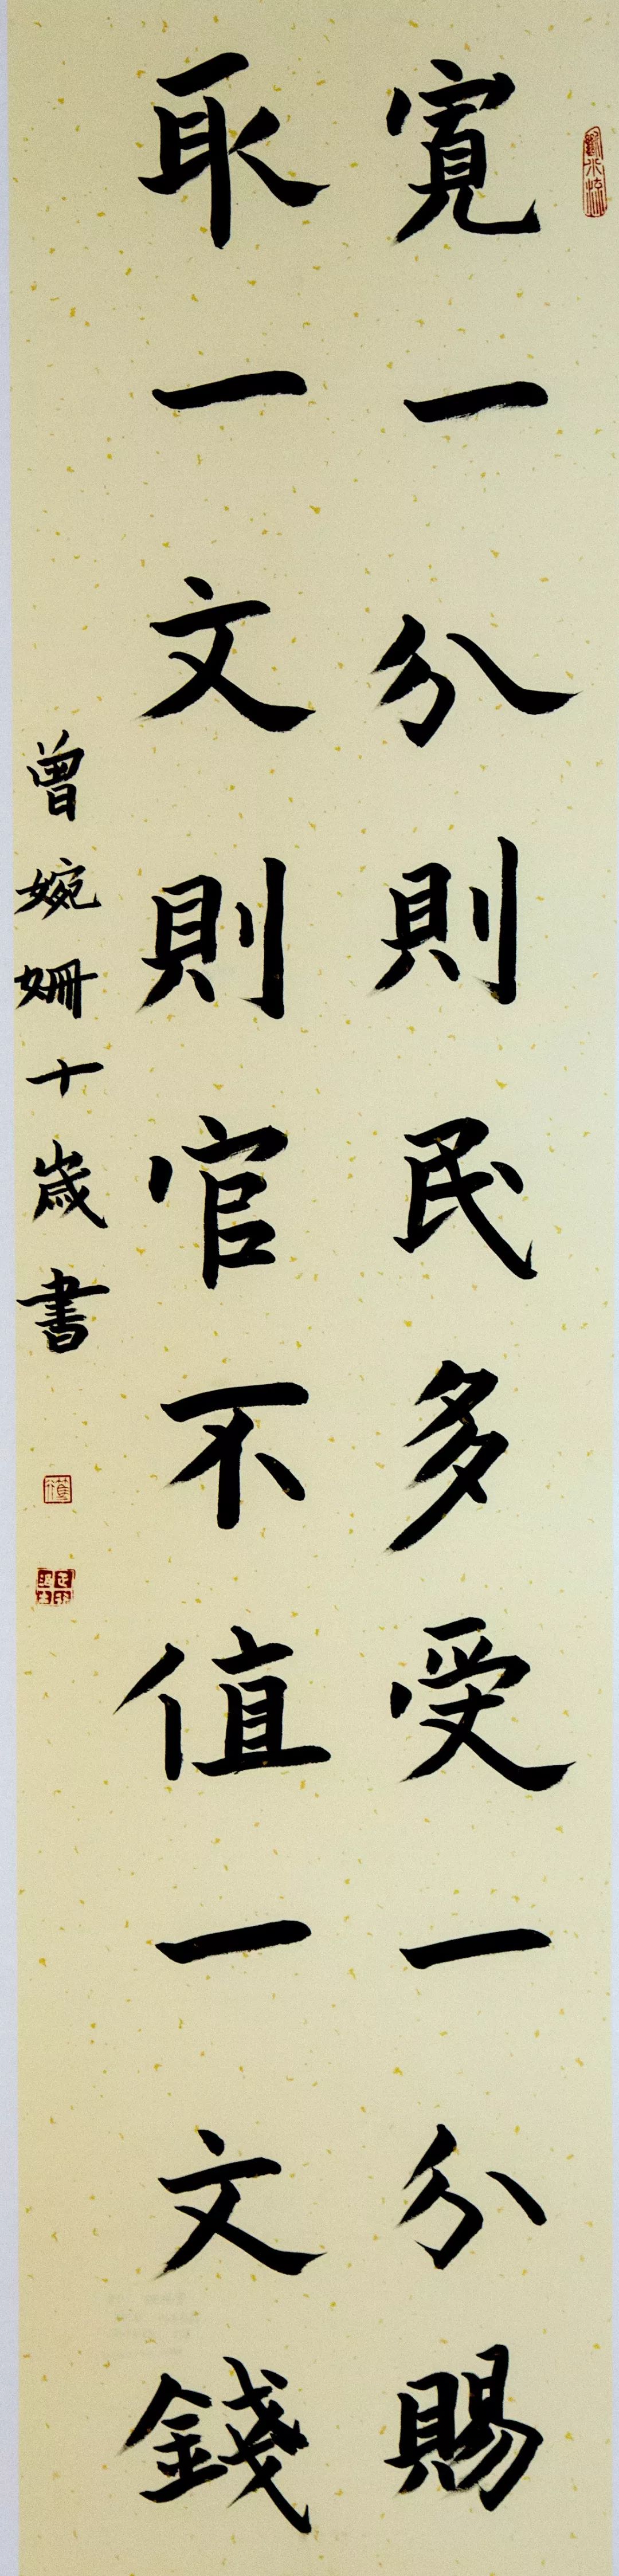 寛一分則民多受一分賜
取一文則官不值一文錢
曾婉姍十歲書